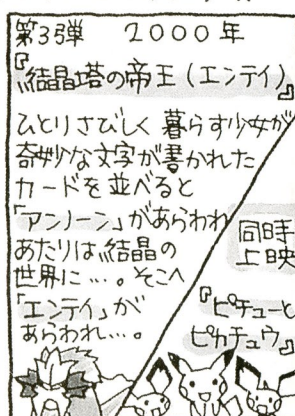 第3弾 2000年
『結晶塔の帝王(エンテイ)』
ひとりさびしく暮らす少女が
奇妙な文字が書かれた
カードを並べると
「アンノーン」があらわれ
あたりは結晶の
世界に…。そこへ
「エンテイ」が
あらわれ…。
同時
上映
『ピチューと
ピカチュウ』